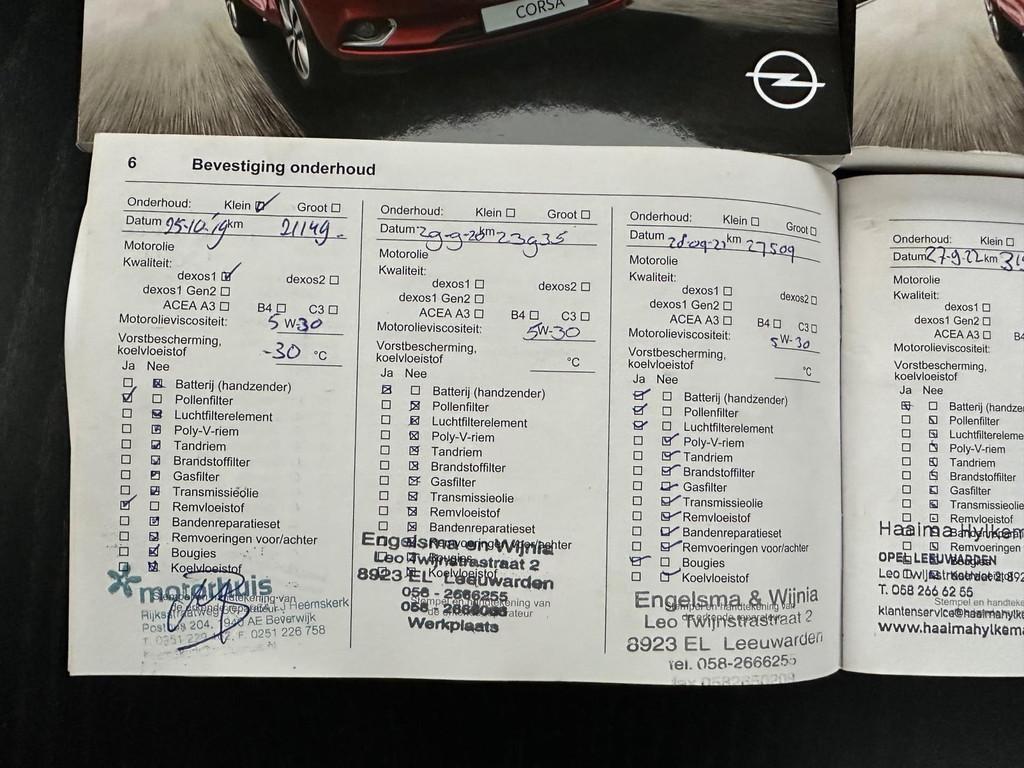 CORSA
6 Bevestiging onderhoud
Onderhoud: Klein Groot
Datum 25-10-'19 km 21149
Motorolie
Kwaliteit:
dexos1 dexos2
dexos1 Gen2
ACEA A3 B4 C3
Motorolieviscositeit: 5W-30
Vorstbescherming,
koelvloeistof -30 °C
Ja Nee
Batterij (handzender)
Pollenfilter
Luchtfilterelement
Poly-V-riem
Tandriem
Brandstoffilter
Gasfilter
Transmissieolie
Remvloeistof
Bandenreparatieset
Remvoeringen voor/achter
Bougies
Koelvloeistof
motorhuis
Heemskerk
AE Beverwijk
F. 0251 226 758
Onderhoud: Klein Groot
Datum 29-9-20 km 23935
Motorolie
Kwaliteit:
dexos1 dexos2
dexos1 Gen2
ACEA A3 B4 C3
Motorolieviscositeit: 5W-30
Vorstbescherming,
koelvloeistof °C
Ja Nee
Batterij (handzender)
Pollenfilter
Luchtfilterelement
Poly-V-riem
Tandriem
Brandstoffilter
Gasfilter
Transmissieolie
Remvloeistof
Bandenreparatieset
Remvoeringen voor/achter
Bougies
Koelvloeistof
Engelsma en Wijnia
Leo Twijnstrastraat 2
8923 EL Leeuwarden
058 - 2666255
Werkplaats
Onderhoud: Klein Groot
Datum 28-09-21 km 27509
Motorolie
Kwaliteit:
dexos1 dexos2
dexos1 Gen2
ACEA A3 B4 C3
Motorolieviscositeit: 5W-30
Vorstbescherming,
koelvloeistof °C
Ja Nee
Batterij (handzender)
Pollenfilter
Luchtfilterelement
Poly-V-riem
Tandriem
Brandstoffilter
Gasfilter
Transmissieolie
Remvloeistof
Bandenreparatieset
Remvoeringen voor/achter
Bougies
Koelvloeistof
Engelsma & Wijnia
Stempel en handtekening van
Leo Twijnstrastraat 2
8923 EL Leeuwarden
Tel. 058-2666255
Onderhoud: Klein
Datum 27-9-22 km
Motorolie
Kwaliteit:
dexos1
dexos1 Gen2
ACEA A3
Motorolieviscositeit:
Vorstbescherming,
koelvloeistof
Ja Nee
Batterij (handze
Pollenfilter
Luchtfilterelemen
Poly-V-riem
Tandriem
Brandstoffilter
Gasfilter
Transmissieolie
Remvloeistof
Haaima Hylkem
Remvoeringen
OPEL LEEUWARDEN
T. 058 266 62 55
Stempel en handteke
klantenservice@haaimahylk
www.haaimahylkema